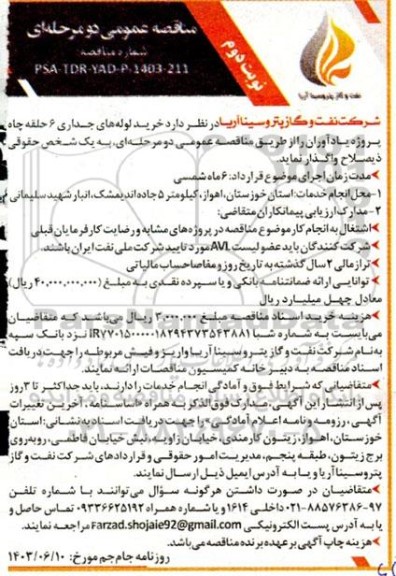 مناقصه عمومی دو مرحله‌ای
شماره مناقصه:
PSA-TDR-YAD-P-1403-211
نوبت دوم
نفت و گاز پتروسینا آریا
شرکت نفت و گاز پتروسینا آریا در نظر دارد خرید لوله‌های جداری ۶ حلقه چاه
پروژه یادآوران را از طریق مناقصه عمومی دو مرحله‌ای، به یک شخص حقوقی
ذیصلاح واگذار نماید
مدت زمان اجرای موضوع قرارداد: ۶ ماه شمسی
۱-محل انجام خدمات: استان خوزستان، اهواز، کیلومتر ۵ جاده اندیمشک، انبار شهید سلیمانی
۲-مدارک ارزیابی پیمانکاران متقاضی:
اشتغال به انجام کار موضوع مناقصه در پروژه‌های مشابه و رضایت کارفرمایان قبلی
شرکت کنندگان باید عضو لیست AVL مورد تایید شرکت ملی نفت ایران باشند.
ترازمالی ۲ سال گذشته به تاریخ روز و مفاصاحساب مالیاتی
توانایی ارائه ضمانتنامه بانکی و یا سپرده نقدی به مبلغ (۴۰,۰۰۰,۰۰۰,۰۰۰ ریال)
معادل چهل میلیارد ریال
هزینه خرید اسناد مناقصه مبلغ ۳,۰۰۰,۰۰۰ ریال می‌باشد که متقاضیان
می‌بایست به شماره شبا نزد بانک سپه
به‌نام شرکت نفت و گاز پتروسینا آریا واریز و فیش مربوطه را جهت دریافت
اسناد مناقصه به دبیرخانه کمیسیون مناقصات ارائه نمایند.
متقاضیانی که شرایط فوق و آمادگی انجام خدمات را دارند، باید حداکثر تا ۳ روز
پس از انتشار این آگهی، مدارک فوق الذکر به همراه «اساسنامه، آخرین تغییرات
آگهی، رزومه و نامه اعلام آمادگی» را جهت دریافت اسناد به نشانی: استان
خوزستان، اهواز، زیتون کارمندی، خیابان زاویه، نبش خیابان فاطمی، روبه‌روی
برج زیتون، طبقه پنجم، مدیریت امور حقوقی و قراردادهای شرکت نفت و گاز
پتروسینا آریا و یا به آدرس ایمیل ذیل ارسال نمایند.
متقاضیان در صورت داشتن هرگونه سؤال می‌توانند با شماره تلفن
۹۷-۸۸۵۷۶۳۸۶-۰۲۱ داخلی ۱۶۱۴ و یا شماره همراه ۰۹۳۳۶۶۲۵۱۹۲ تماس حاصل و
یا به آدرس پست الکترونیکی Farzad.shojaie92@gmail.com مراجعه نمایند.
هزینه چاپ آگهی بر عهده برنده مناقصه می‌باشد.
روزنامه جام جم مورخ: ۱۴۰۳/۰۶/۱۰